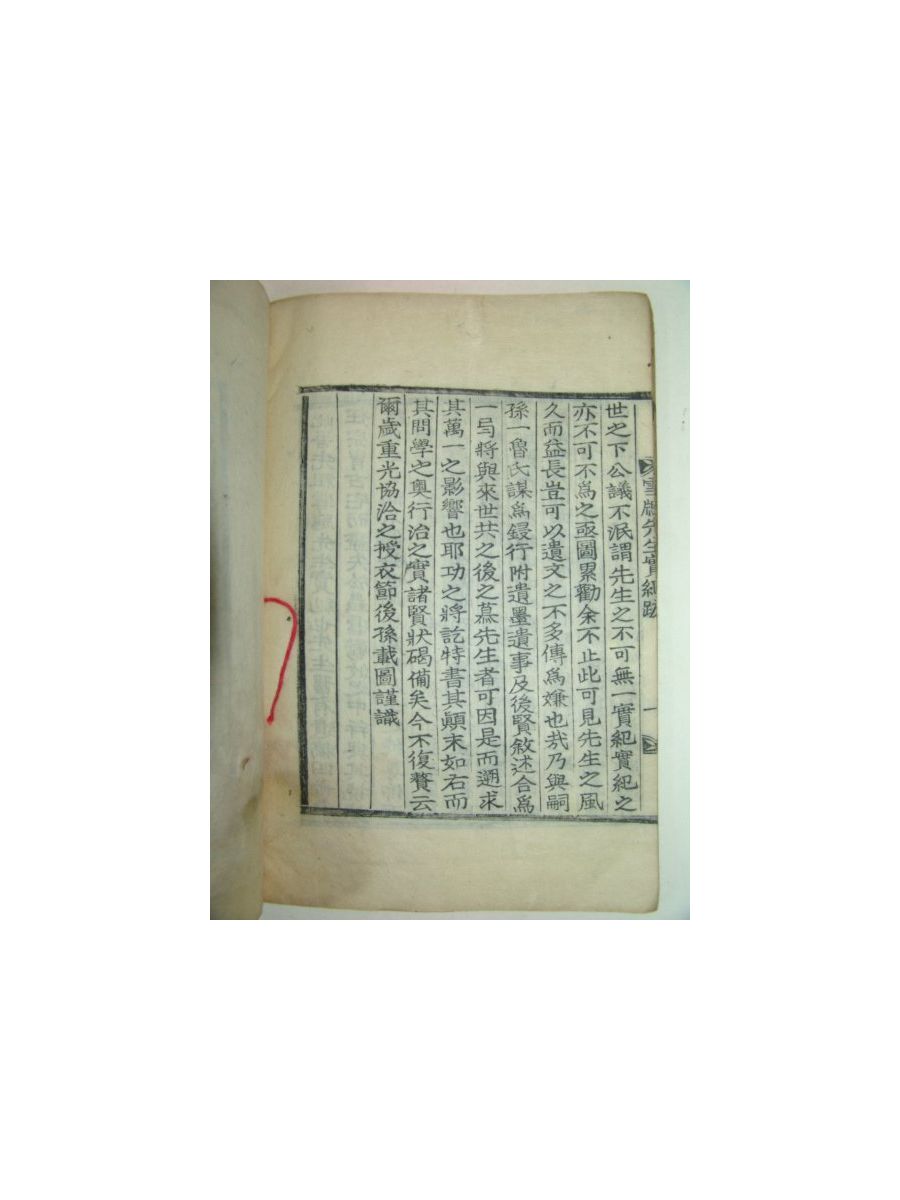 先生實紀跋
一
世之下公議不泯謂先生之不可無一實紀實紀之
亦不可不爲之亟圖累勸余不止此可見先生之風
久而益長豈可以遺文之不多傳爲嫌也哉乃與嗣
孫一魯氏謀爲鋟行附遺墨遺事及後賢敘述合爲
一弓將與來世共之後之慕先生者可因是而遡求
其萬一之影響也耶功之將訖特書其顚末如右而
其問學之奧行治之實諸賢狀碣備矣今不復贅云
爾歲重光協洽之授衣節後孫載圖謹識